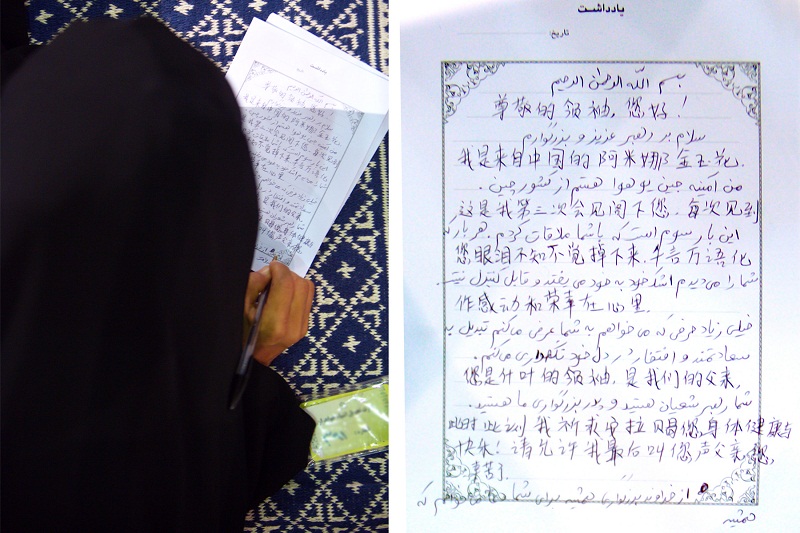 یادداشت
تاریخ:
بسم الله الرحمن الرحیم
尊敬的领袖，您好！
سلام بر رهبر عزیز و بزرگوارم
我是来自中国的阿米娜金玉花.
من آمنه جین یو هوا هستم از کشور چین.
这是我第三次会见阁下您，每次见到
این بار سوم است که با شما ملاقات کردم. هر بار که
您眼泪不知不觉掉下来，千言万语化
شما را می‌دیدم اشک خود به خود می‌یفتد و قابل کنترل نیست.
作感动和荣幸在心里.
خیلی زیاد حرفی که می خواهم به شما عرض می‌کنم تبدیل به
سعادتمند و افتخار در دل خود نگهداری می‌کنم.
您是什叶的领袖，是我们的父亲，
شما رهبر شیعیان هستید و پدر بزرگواری ما هستید.
此时此刻我祈求安拉赐您身体健康与
快乐！请允许我最后叫您声父亲，您
辛苦了.
از خداوند بزرگواری همیشه برای شما دعا می‌خواهم که
همیشه